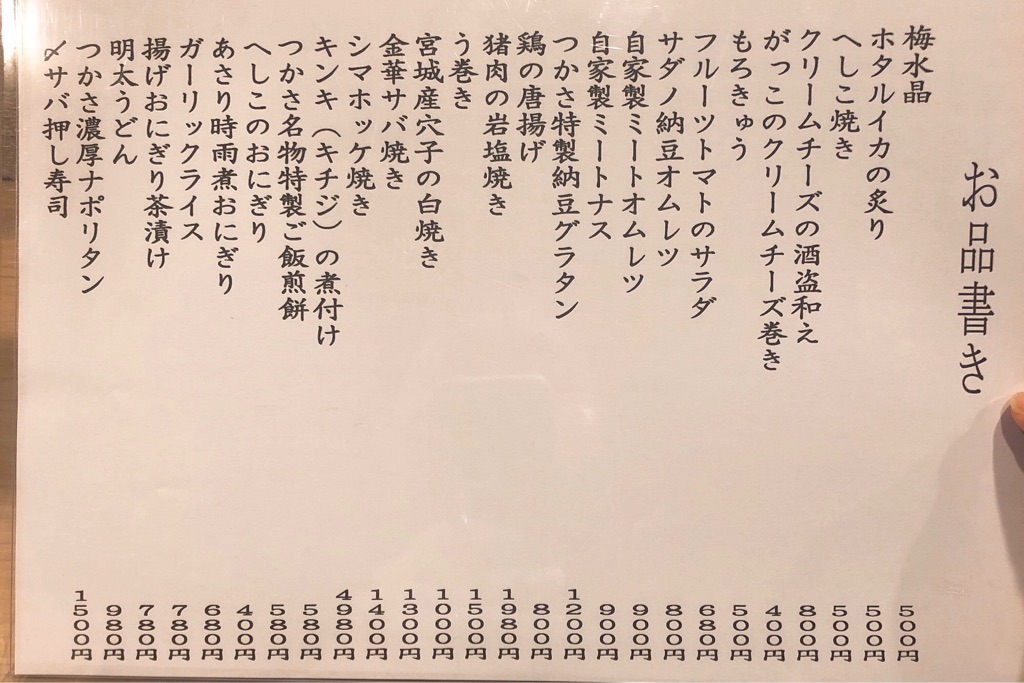 お品書き
梅水晶 500円
ホタルイカの炙り 500円
へしこ焼き 500円
クリームチーズの酒盗和え 800円
がっこのクリームチーズ巻き 400円
もろきゅう 500円
フルーツトマトのサラダ 680円
サダノ納豆オムレツ 800円
自家製ミートオムレツ 900円
自家製ミートナス 900円
つかさ特製納豆グラタン 1200円
鶏の唐揚げ 800円
猪肉の岩塩焼き 1980円
う巻き 1500円
宮城産穴子の白焼き 1000円
金華サバ焼き 1300円
シマホッケ焼き 1400円
キンキ（キチジ）の煮付け 4980円
つかさ名物特製ご飯煎餅 580円
へしこのおにぎり 580円
あさり時雨煮おにぎり 400円
ガーリックライス 680円
揚げおにぎり茶漬け 780円
明太うどん 780円
つかさ濃厚ナポリタン 980円
〆サバ押し寿司 1500円